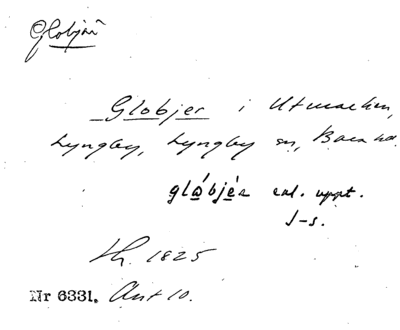 Globjär
Globjer i Utmarken,
Lyngby, Lyngby sn, Bara hd.
glábjèr enl. uppt.
J-s.
Lh. 1825
Nr 6331. Ant 10.